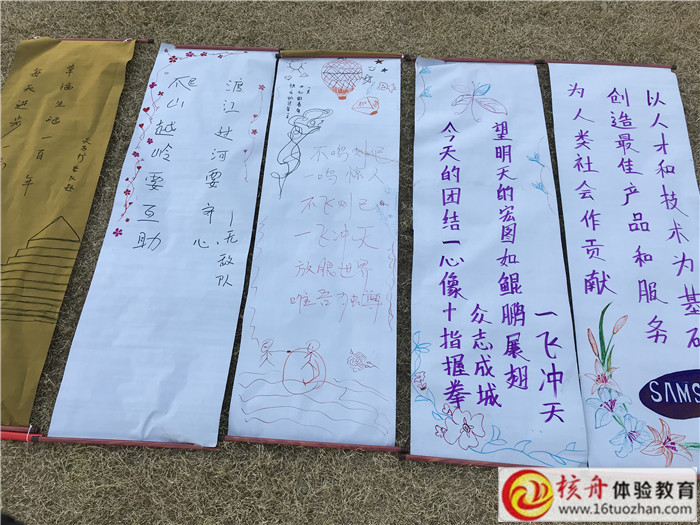 幸福生活一百年
每天进步一
渡江过河要齐心
爬山越岭要互助
一无敌队
不鸣则已
一鸣惊人
不飞则已
一飞冲天
放眼世界
唯吾独尊
今天的团结一心像十指握拳
众志成城
望明天的宏图如鲲鹏展翅
一飞冲天
以人才和技术为基
创造最佳产品和服务
为人类社会作贡献
SAMS
核舟体验教育
www.16tuozhan.com